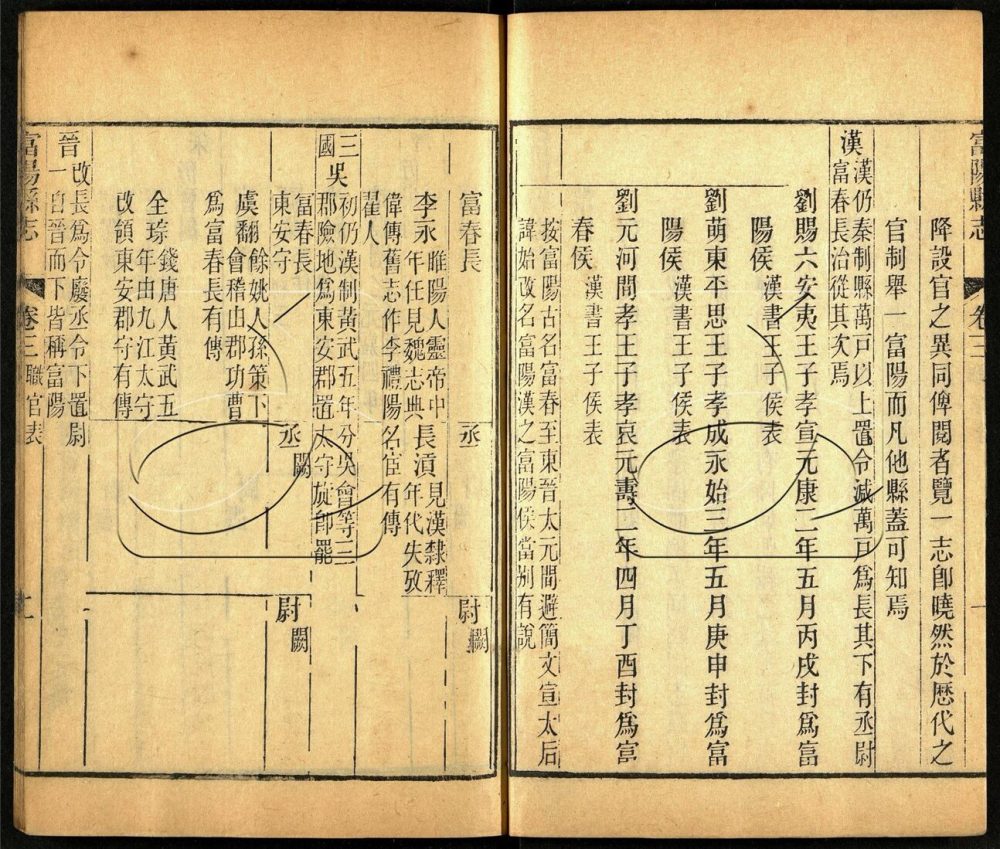 富陽縣志
卷三
一
降設官之異同俾閱者覽一志卽曉然於歷代之
官制舉一富陽而凡他縣蓋可知焉
漢
漢仍秦制縣萬戸以上置令減萬戸爲長其下有丞尉
富春長治從其次焉
劉賜六安夷王子孝宣元康二年五月丙戌封爲富
陽侯
漢書王子侯表
劉萌東平思王子孝成永始三年五月庚申封爲富
陽侯
漢書王子侯表
劉元河間孝王子孝哀元壽二年四月丁酉封爲富
春侯
漢書王子侯表
按富陽古名富春至東晉太元間避簡文宣太后
諱始改名富陽漢之富陽侯當別有說
富春長
丞
尉
闕
李永
睢陽人靈帝中
年任見魏志典
長
濆
見漢隸釋
年代失攷
偉傳舊志作李禮陽名宦有傳
翟人
三國
吳
初仍漢制黃武五年分吳會等三
郡險地爲東安郡置太守旋卽罷
富春長
東安守
丞
闕
尉
闕
虞翻
餘姚人孫策下
會稽由郡功曹
爲富春長有傳
全琮
錢唐人黃武五
年由九江太守
改領東安郡守有傳
晉
改長爲令廢丞令下置尉
一自晉而下皆稱富陽
富陽縣志
卷三
職官表